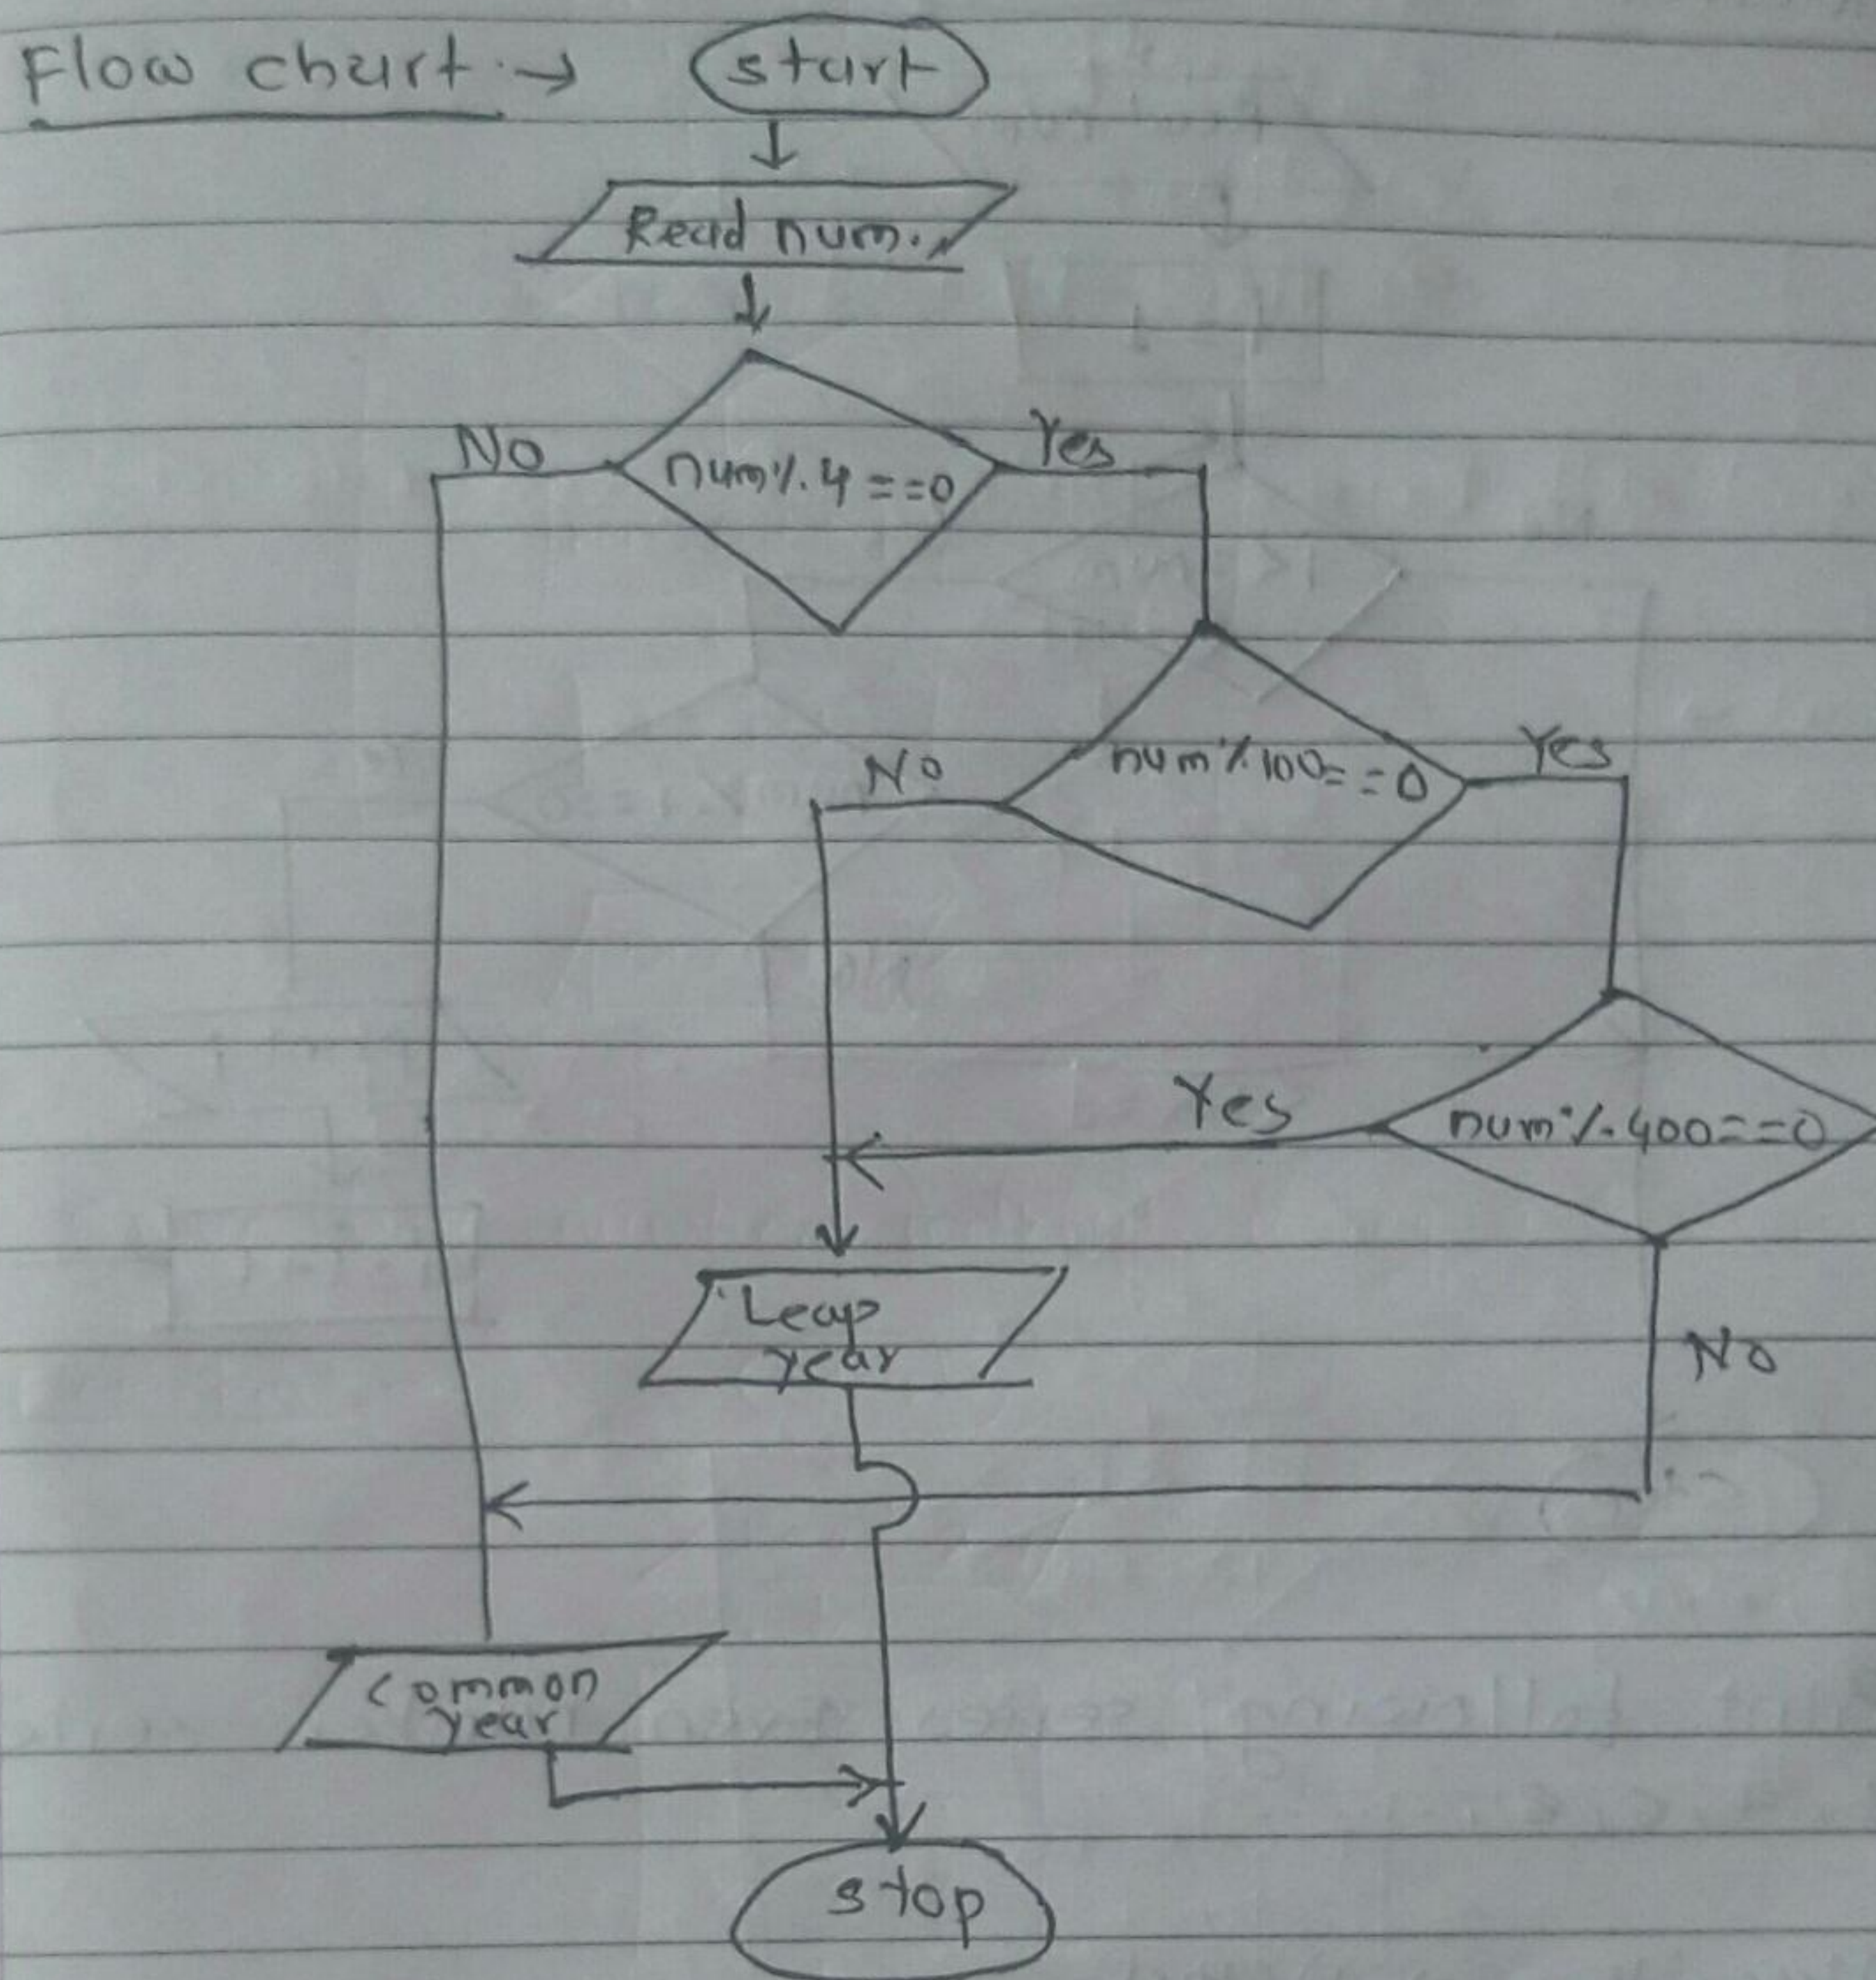 Flow chart → start
Read num.
No
num % 4 == 0
Yes
num % 100 == 0
No
Yes
Yes
num % 400 == 0
Leap
year
No
common
year
stop